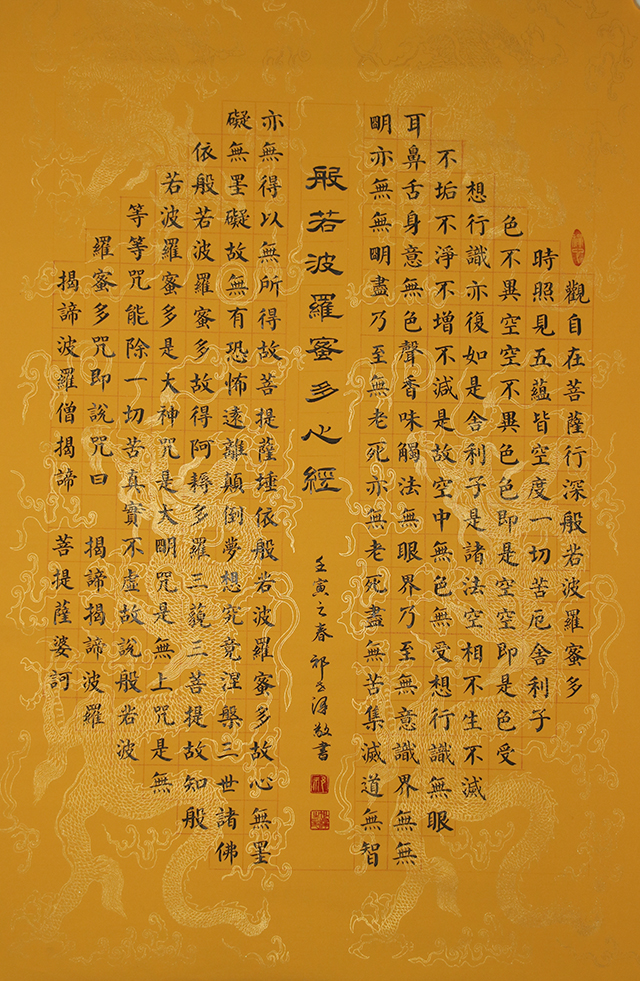 觀自在菩薩行深般若波羅蜜多
時照見五蘊皆空度一切苦厄舍利子
色不異空空不異色色即是空空即是色受
想行識亦復如是舍利子是諸法空相不生不滅
不垢不淨不增不減是故空中無色無受想行識無眼
耳鼻舌身意無色聲香味觸法無眼界乃至無意識界無無
明亦無無明盡乃至無老死亦無老死盡無苦集滅道無智
般若波羅蜜多心經
壬寅之春祁 敬書
亦無得以無所得故菩提薩埵依般若波羅蜜多故心無罣
礙無罣礙故無有恐怖遠離顛倒夢想究竟涅槃三世諸佛
依般若波羅蜜多故得阿耨多羅三藐三菩提故知般
若波羅蜜多是大神咒是大明咒是無上咒是無
等等咒能除一切苦真實不虛故說般若波
羅蜜多咒即說咒曰 揭諦揭諦波羅
揭諦波羅僧揭諦 菩提薩婆訶